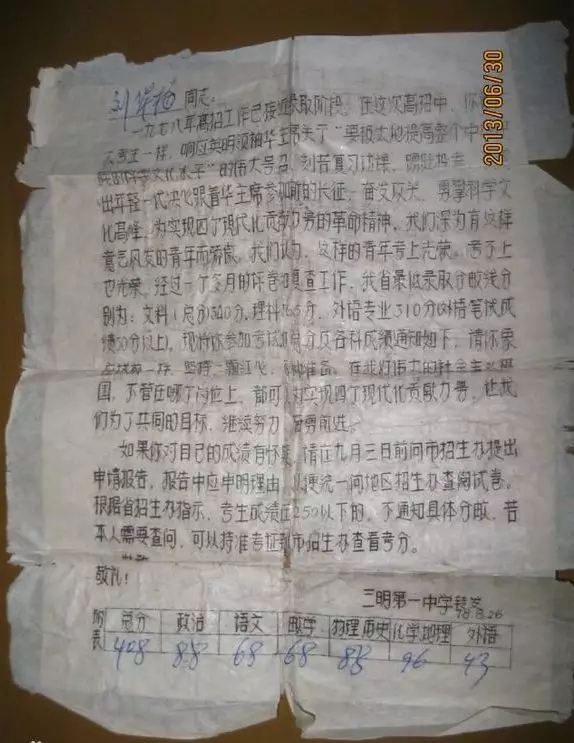 同志:
一九七八年高招工作已接近录取阶段。在这次高招中,你
考生一样,响应英明领袖华主席关于"要极大地提高整个中
科学文化水平"的伟大号召,刻苦复习功课,踊跃投考,
出年轻一代决心跟着华主席参加新的长征,奋发攻关,勇攀科学文
化高峰,为实现四个现代化贡献力量的革命精神。我们深为有这样
意气风发的青年而骄傲。我们认为,这样的青年考上光荣,考不上
也光荣。经过一个多月的评卷和复查工作,我省最低录取分数线分
别为:文科(总分)340分,理科 分,外语专业310分(外语笔试成
绩50分以上)。现将你参加考试的总分及各科成绩通知如下,请你象
一样,坚持一颗红心, 准备。在我们伟大的社会主义祖
国,不管在哪个岗位上,都可为实现四个现代化贡献力量,让我
们为了共同的目标,继续努力,奋勇前进。
如果你对自己的成绩有怀疑,请在九月三日前向市招生办提出
申请报告。报告中应申明理由,以便统一向地区招生办查阅试卷。
根据省招生办指示,考生成绩在250以下的,不通知具体分数,若
本人需要查问,可以持准考证到市招生办查看考分。
敬礼!
三明第一中学转发
78.8.26
附表 总分 政治 语文 数学 物理 历史 化学 地理 外语
408 88 68 68 88 96 43
2013/06/30